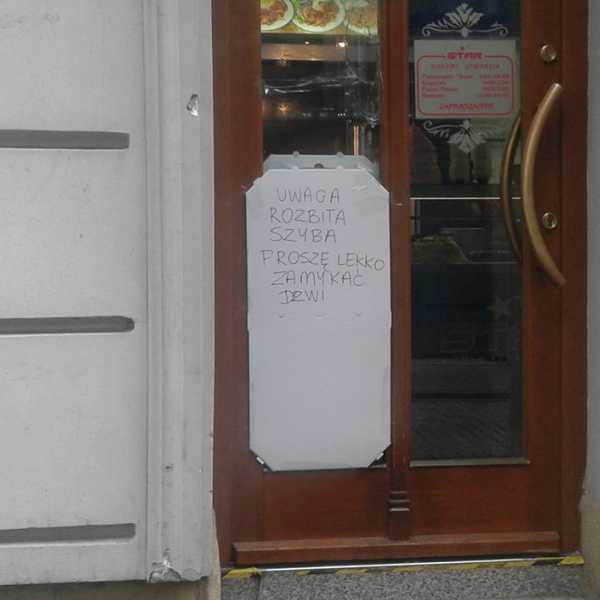 STAR
ZAPRASZAMY
UWAGA
ROZBITA
SZYBA
PROSZĘ LEKKO
ZAMYKAĆ
DZWI